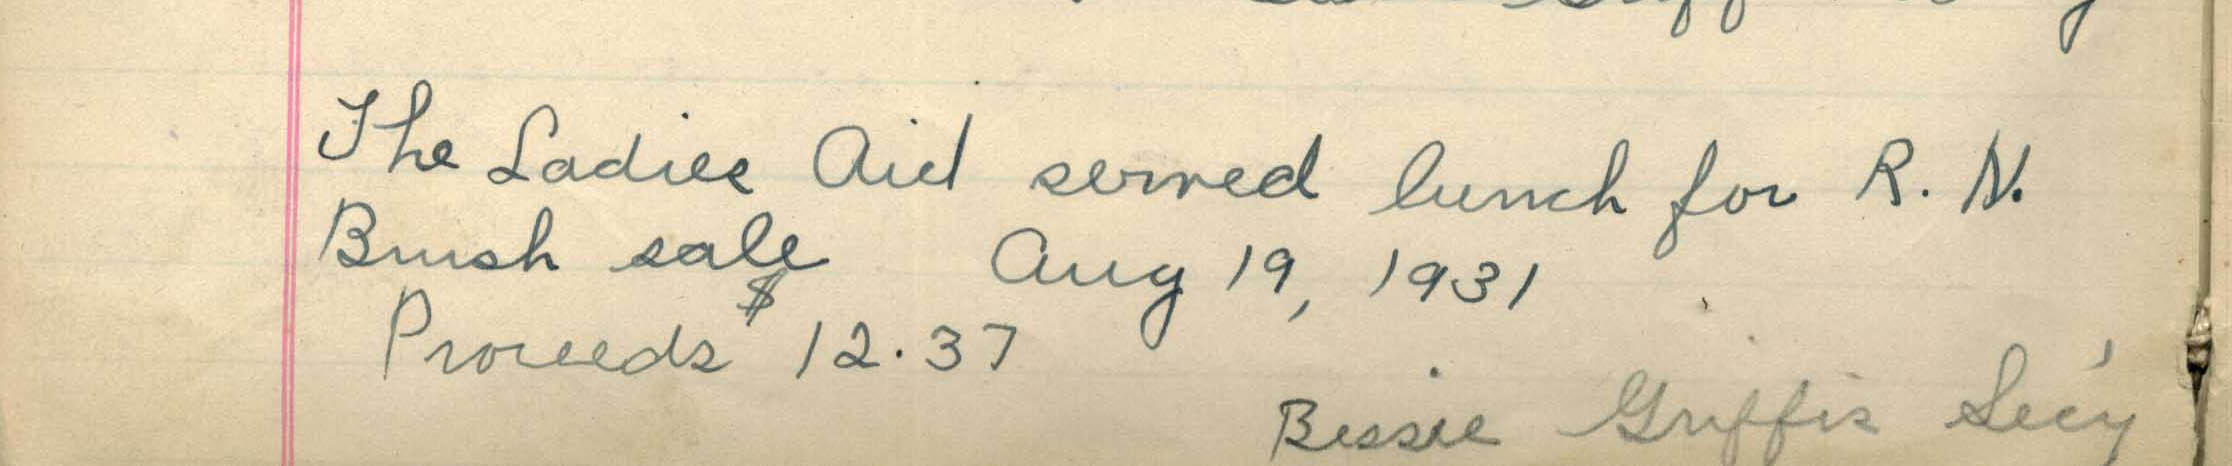 The Ladies Aid served lunch for R. N.
Brush sale Aug 19, 1931
Proceeds $12.37
Bessie Griffis Sec'y